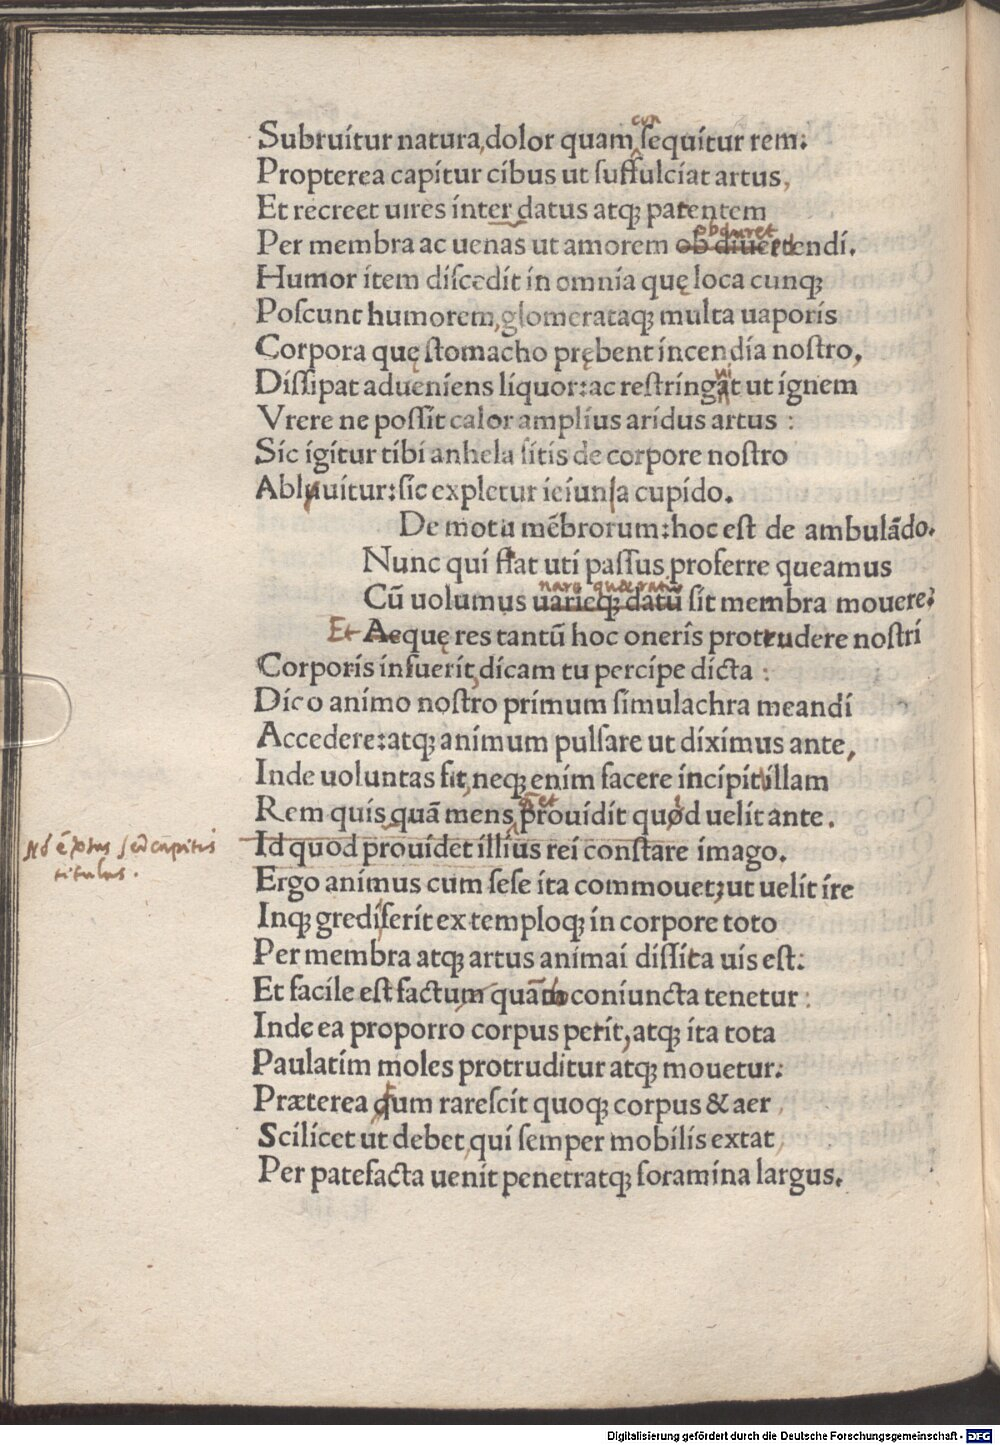 Subruitur natura,dolor quam ſequitur rem:
con
Propterea capitur cibus ut ſuffulciat artus,
Et recreet uires inter datus atq; patentem
obduret
Per membra ac uenas ut amorem ob diuertendi.
Humor item diſcedit in omnia quę loca cunq;
Poſcunt humorem,glomerataq; multa uaporis
Corpora quę ſtomacho prębent incendia noſtro,
Diſſipat adueniens liquor:ac reſtringat ut ignem
Vrere ne poſſit calor amplius aridus artus :
Sic igitur tibi anhela ſitis de corpore noſtro
Abluuitur:ſic expletur ieiunia cupido.
De motu mēbrorum:hoc eſt de ambulādo.
Nunc qui fiat uti paſſus proferre queamus
Cū uolumus uarieq; datū ſit membra mouere?
Et Aequę res tantū hoc oneris protrudere noſtri
Corporis inſuerit,dicam tu percipe dicta :
Dico animo noſtro primum ſimulachra meandi
Accedere:atq; animum pulſare ut diximus ante,
Inde uoluntas fit,neq; enim facere incipit illam
Rem quis quā mens prouidit quod uelit ante.
Id quod prouidet illius rei conſtare imago.
titulus.
Ergo animus cum ſeſe ita commouet;ut uelit ire
Inq; gredi,ferit ex temploq; in corpore toto
Per membra atq; artus animai diſſita uis eſt:
Et facile eſt factum quam coniuncta tenetur :
Inde ea proporro corpus perit,atq; ita tota
Paulatim moles protruditur atq; mouetur:
Præterea qum rareſcit quoq; corpus & aer ,
Scilicet ut debet,qui ſemper mobilis extat,
Per patefacta uenit penetratq; foramina largus.
Digitalisierung gefördert durch die Deutsche Forschungsgemeinschaft - DFG